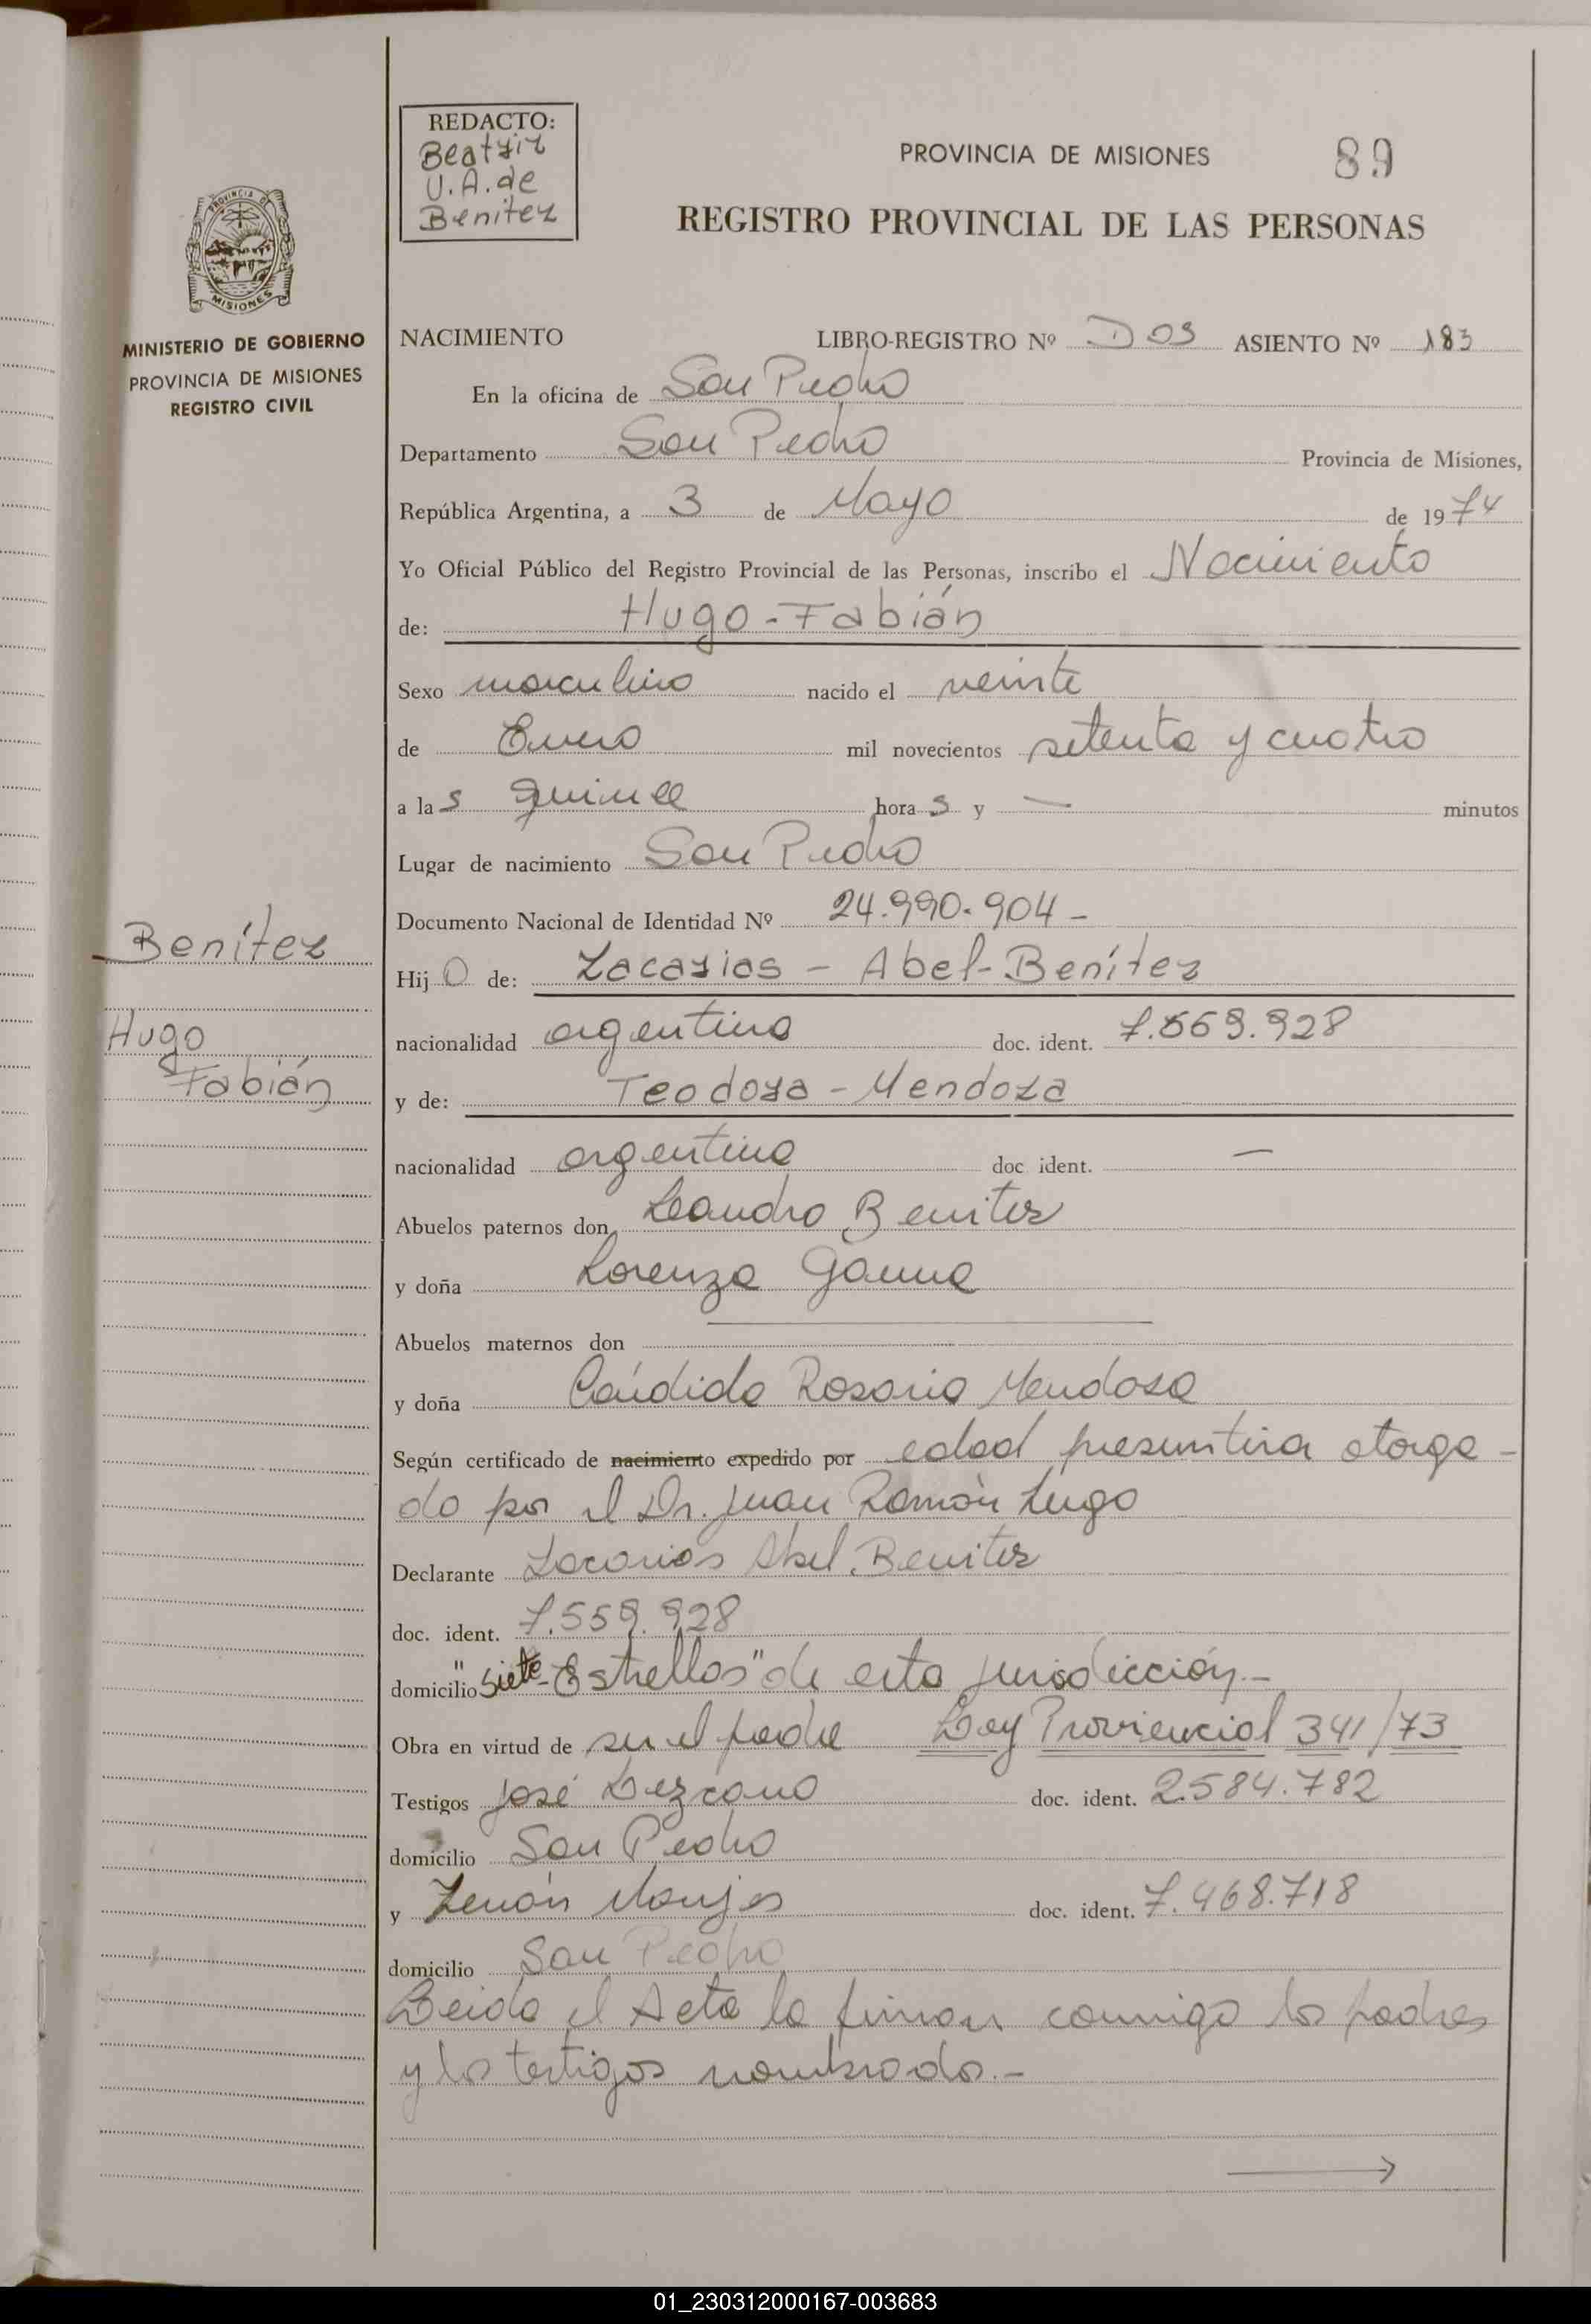 REDACTO:
Beatriz
U.A. de
Benitez
PROVINCIA DE MISIONES 89
REGISTRO PROVINCIAL DE LAS PERSONAS
PROVINCIA DE
MISIONES
MINISTERIO DE GOBIERNO
PROVINCIA DE MISIONES
REGISTRO CIVIL
NACIMIENTO LIBRO-REGISTRO Nº Dos ASIENTO Nº 183
En la oficina de San Pedro
Departamento San Pedro Provincia de Misiones,
República Argentina, a 3 de Mayo de 1974
Yo Oficial Público del Registro Provincial de las Personas, inscribo el Nacimiento
de: Hugo-Fabián
Sexo masculino nacido el veinte
de Enero mil novecientos setenta y cuatro
a las quince horas y — minutos
Lugar de nacimiento San Pedro
Documento Nacional de Identidad Nº 24.990.904-
Benítez
Hijo de: Zacarias - Abel-Benítez
Hugo
Fabián
nacionalidad argentina doc. ident. 7.569.928
y de: Teodora - Mendoza
nacionalidad argentina doc. ident. —
Abuelos paternos don Leandro Benitez
y doña Lorenza Gauna
Abuelos maternos don —
y doña Cándida Rosario Mendosa
Según certificado de nacimiento expedido por edad presuntiva otorga-
do por el Dr. Juan Ramón Lugo
Declarante Zacarias Abel Benitez
doc. ident. 7.559.928
domicilio "Siete-Estrellas" de esta jurisdicción.-
Obra en virtud de ser el padre Ley Proviencial 341/73
Testigos José Lezcano doc. ident. 2.584.782
domicilio San Pedro
y Zenón Monjes doc. ident. 7.468.718
domicilio San Pedro
Leida el Acta la firman conmigo los padres
y los testigos nombrados.-
01_230312000167-003683